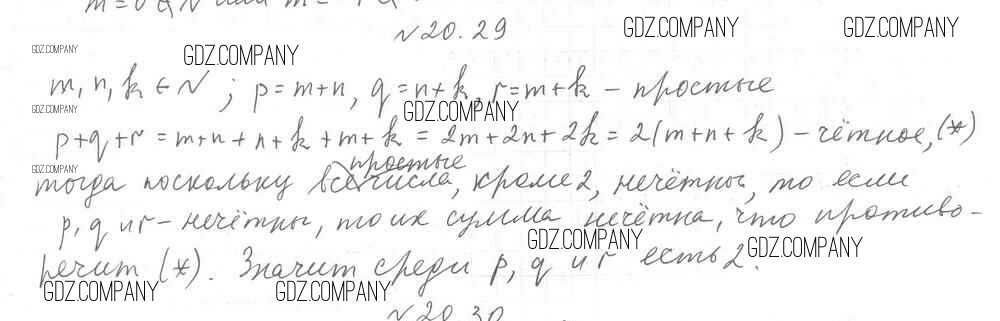 №20.29
GDZ.COMPANY GDZ.COMPANY
GDZ.COMPANY GDZ.COMPANY
m, n, k ∈ N ; p = m+n, q = n+k, r = m+k – простые
GDZ.COMPANY GDZ.COMPANY
p+q+r = m+n+n+k+m+k = 2m+2n+2k = 2(m+n+k) – чётное, (*)
GDZ.COMPANY
тогда поскольку все простые числа, кроме 2, нечётны, то если
p, q и r – нечётны, то их сумма нечётна, что противо-
GDZ.COMPANY GDZ.COMPANY
речит (*). Значит среди p, q и r есть 2.
GDZ.COMPANY GDZ.COMPANY
№20.30